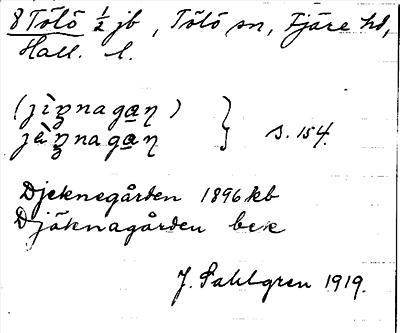 8 Tölö ½ jb, Tölö sn, Fjäre hd,
Hall. l.
(jìŋnagaɳ)
jèŋnagaɳ } s. 154.
Djeknegården 1896 kb
Djäknagården bek
J. Sahlgren 1919.